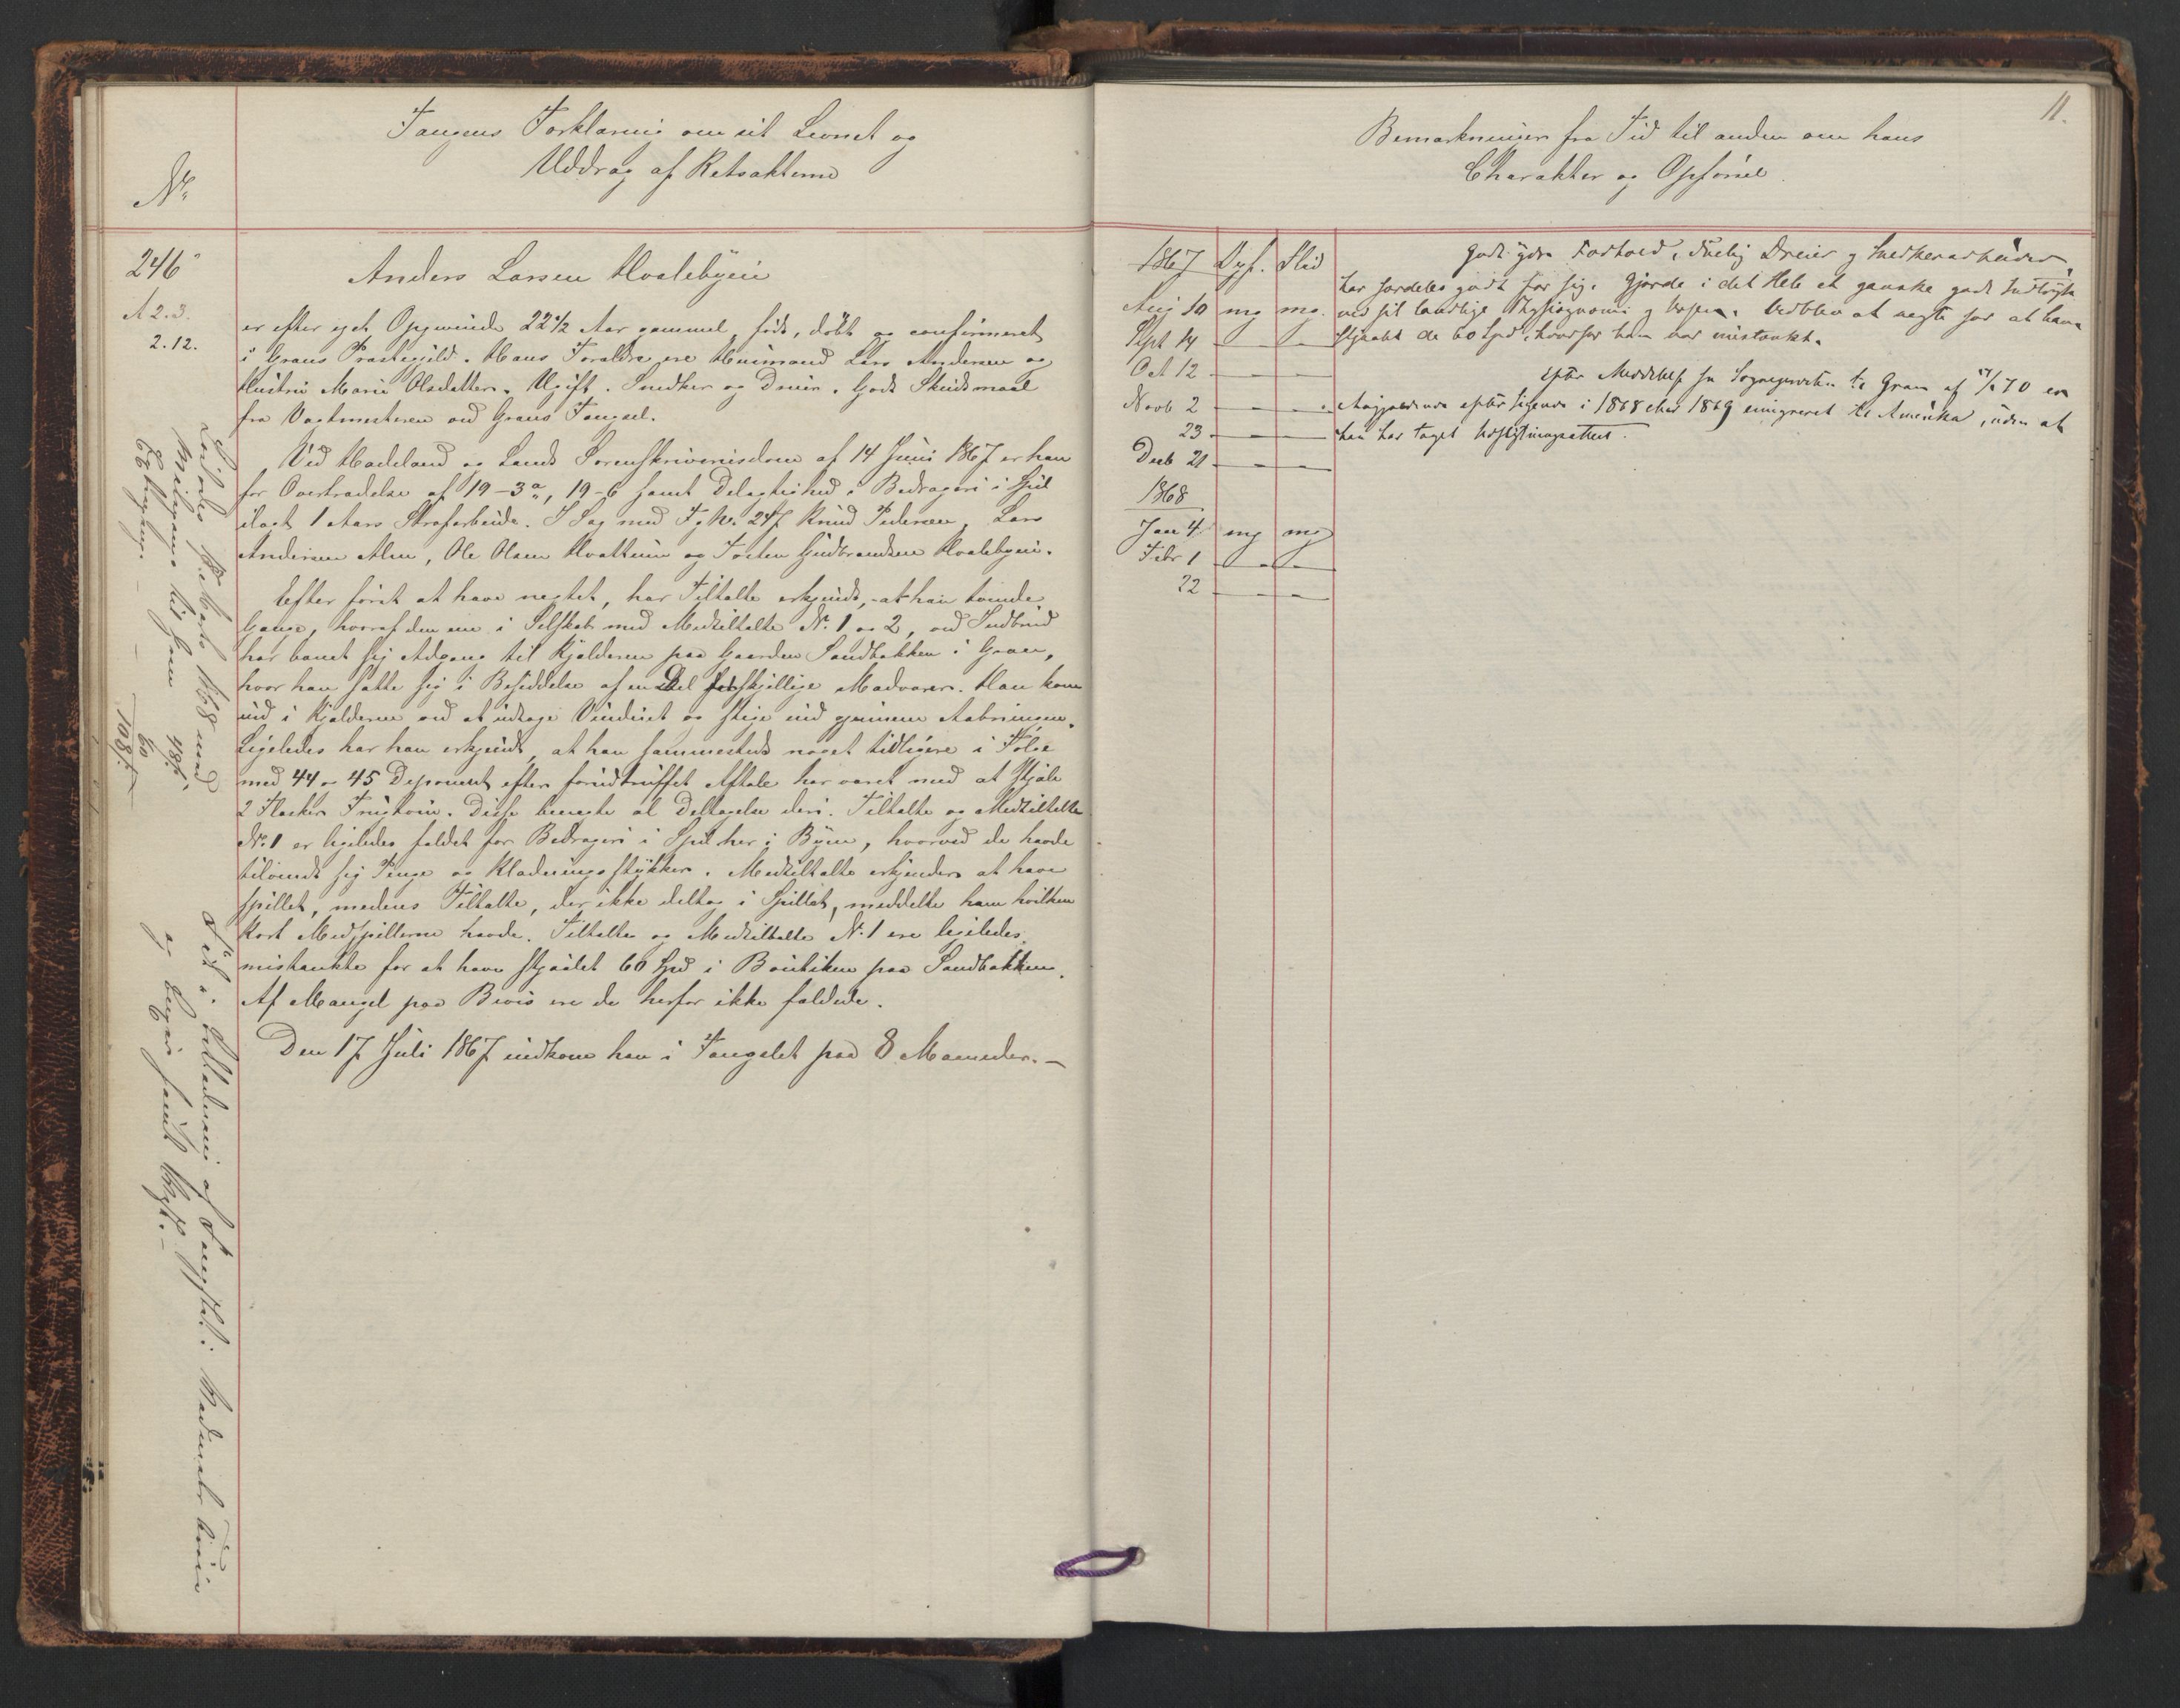 Nr.
Fangens Forklaring om sit Levnet og
Uddrag af Retsakterne
246
A 2.3.
2.12.
Anders Larsen Hvalebyeie
er efter eget Opgivende 22 1/2 Aar gammel, født, døbt og confirmeret
i Grans Præstegjeld. Hans Forældre ere Huusmand Lars Andersen og
Hustru Marie Olsdatter. Ugift. Snedker og Dreier. Godt Skudsmaal
fra Vagtmesteren ved Grans Fængsel.
Ved Hadeland og Lands Sorenskriverisdom af 14 Juni 1867 er han
for Overtrædelse af 19-3 a, 19-6 samt Delagtighed i Bedrageri i Spil
ilagt 1 Aars Strafarbeide. I Sag med Fg No. 247 Knud Pedersen, Lars
Andersen Alm, Ole Olsen Hvattum og Torsten Gudbrandsen Hvalebyeie.
Efter først at have negtet, har Tiltalte erkjendt, at han tvende
Gange, hvoraf den ene i Selskab med Medtiltalte Nr. 1 og 2, ved Indbrud
har banet sig Adgang til Kjælderen paa Gaarden Sandbakken i Gran,
hvor han satte sig i Besiddelse af en Del forskjellige Madvarer. Han kom
ind i Kjælderen ved at udtage Vinduet og stige ind gjennem Aabningen.
Ligeledes har han erkjendt, at han sammesteds noget tidligere i Følge
med 44 og 45 Deponent efter forudtruffet Aftale har været med at stjæle
2 Flasker Frugtvin. Disse benegte al Deltagelse deri. Tiltalte og Medtiltalte
Nr. 1 er ligeledes fældet for Bedrageri i Spil her i Byen, hvorved de havde
tilvendt sig Penge og Klædningsstykker. Medtiltalte erkjender at have
spillet, medens Tiltalte, der ikke deltog i Spillet, meddelte ham hvilken
Kort Medspillerne havde. Tiltalte og Medtiltalte Nr. 1 ere ligeledes
mistænkte for at have stjaalet 60 Spd i Boutiken paa Sandbakken.
Af Mangel paa Bevis ere de herfor ikke fældede.
Den 17 Juli 1867 indkom han i Fængslet paa 8 Maaneder.-
Løslodes Marts 1868 med
Reisepenge til Gran 48 s.
60
108 s.
Fik i Beklædning af Fængslet:
og samt
11.
Bemærkninger fra Tid til anden om hans
Charakter og Opførsel.
1867 Opf. Flid
Aug 10 mg mg.
Sept 14 - -
Oct 12 - -
Novb 2 - -
23 - -
Decb 21 - -
1868
Jan 4 mg mg
Febr 1 - -
22 - -
Godt ydre Forhold, duelig Dreier og Snedkerarbeider,
har særdeles godt for sig. Gjorde i det Hele et ganske godt Indtryk
ved sit landlige Physiognomi og Væsen. Vedblev at negte for at have
stjaalet de 60 Spd, hvorfor han var mistænkt.
Efter Meddelelse fra Sognepresten til Gran af 70 er
Angjældende efter Sigende i 1868 eller 1869 emigreret til Amerika, uden at
han har taget Udflytningsattest.